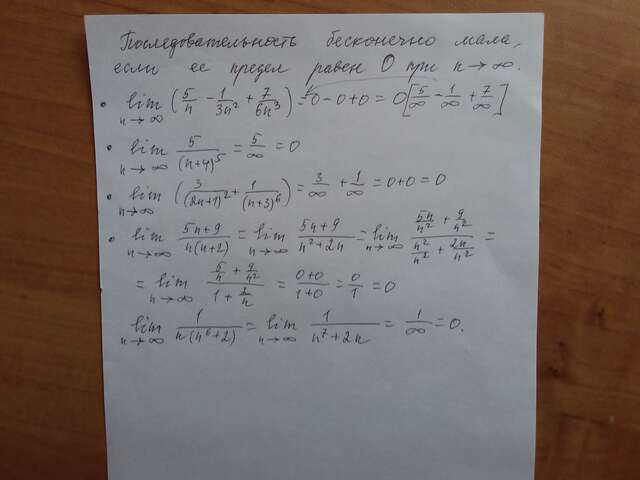 Последовательность бесконечно мала,
если ее предел равен 0 при n→∞.
• lim n→∞ (5/n - 1/3n² + 7/6n³) = 0-0+0 = 0 [5/∞ - 1/∞ + 7/∞]
• lim n→∞ 5/(n+4)⁵ = 5/∞ = 0
• lim n→∞ (3/(2n+1)² + 1/(n+3)⁶) = 3/∞ + 1/∞ = 0+0 = 0
• lim n→∞ 5n+9/n(n+2) = lim n→∞ 5n+9/n²+2n = lim n→∞ (5n/n² + 9/n²)/(n²/n² + 2n/n²) =
= lim n→∞ (5/n + 9/n²)/(1 + 2/n) = 0+0/1+0 = 0/1 = 0
lim n→∞ 1/n(n⁶+2) = lim n→∞ 1/n⁷+2n = 1/∞ = 0.